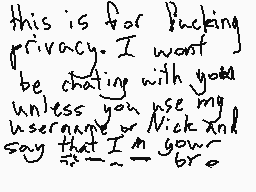 this is for fucking
privacy. I wont
be chating with you
unless you use my
username or Nick and
say that I'm your
bro